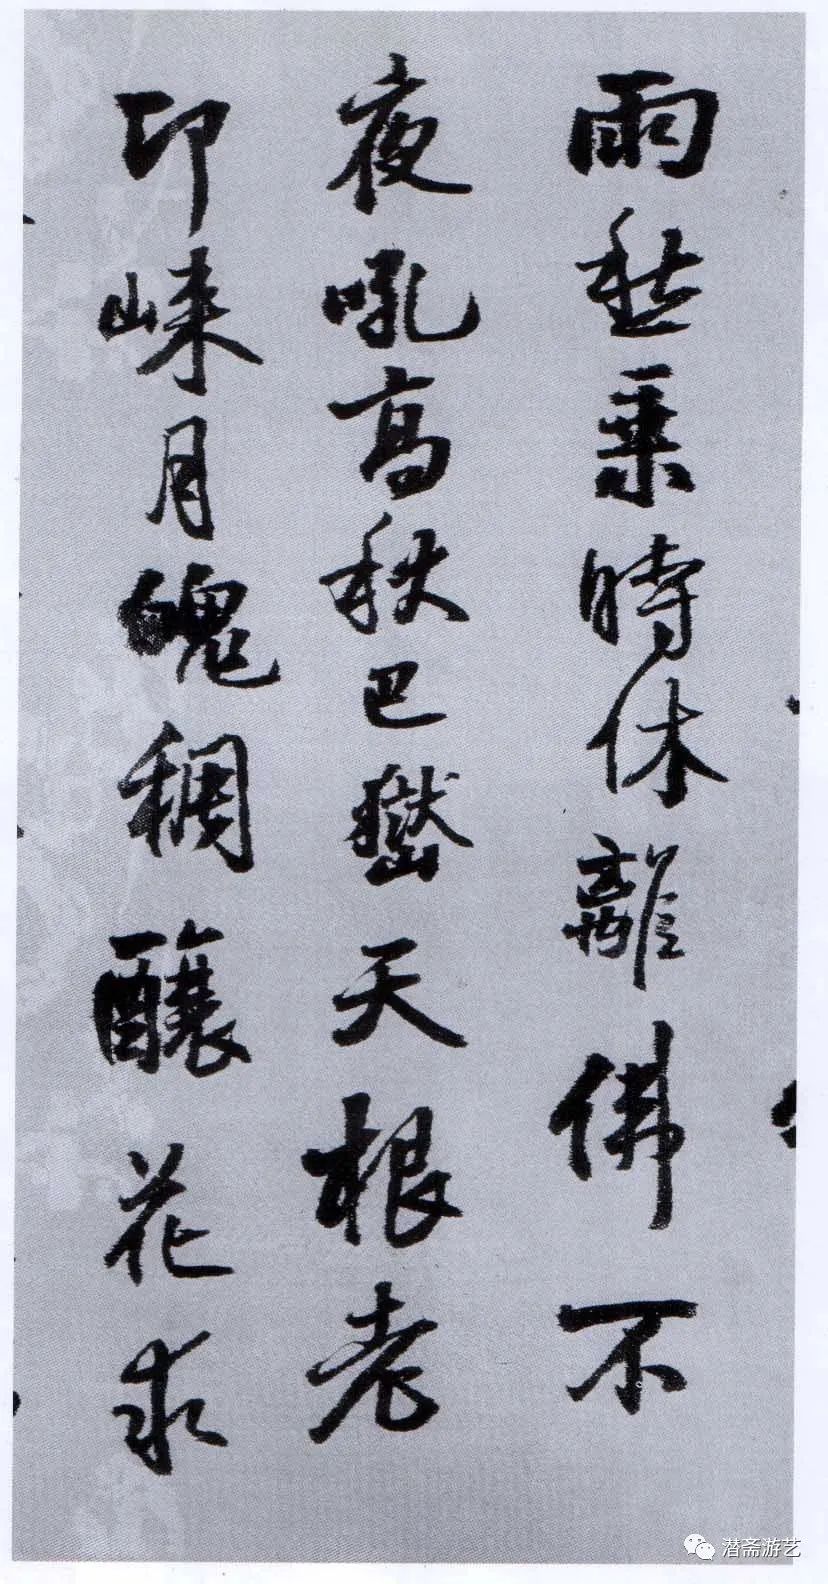 雨愁乘時休離佛不
夜吼高秋巴嶽天根老
邛崍月魄稠釀花求
潜斋游艺